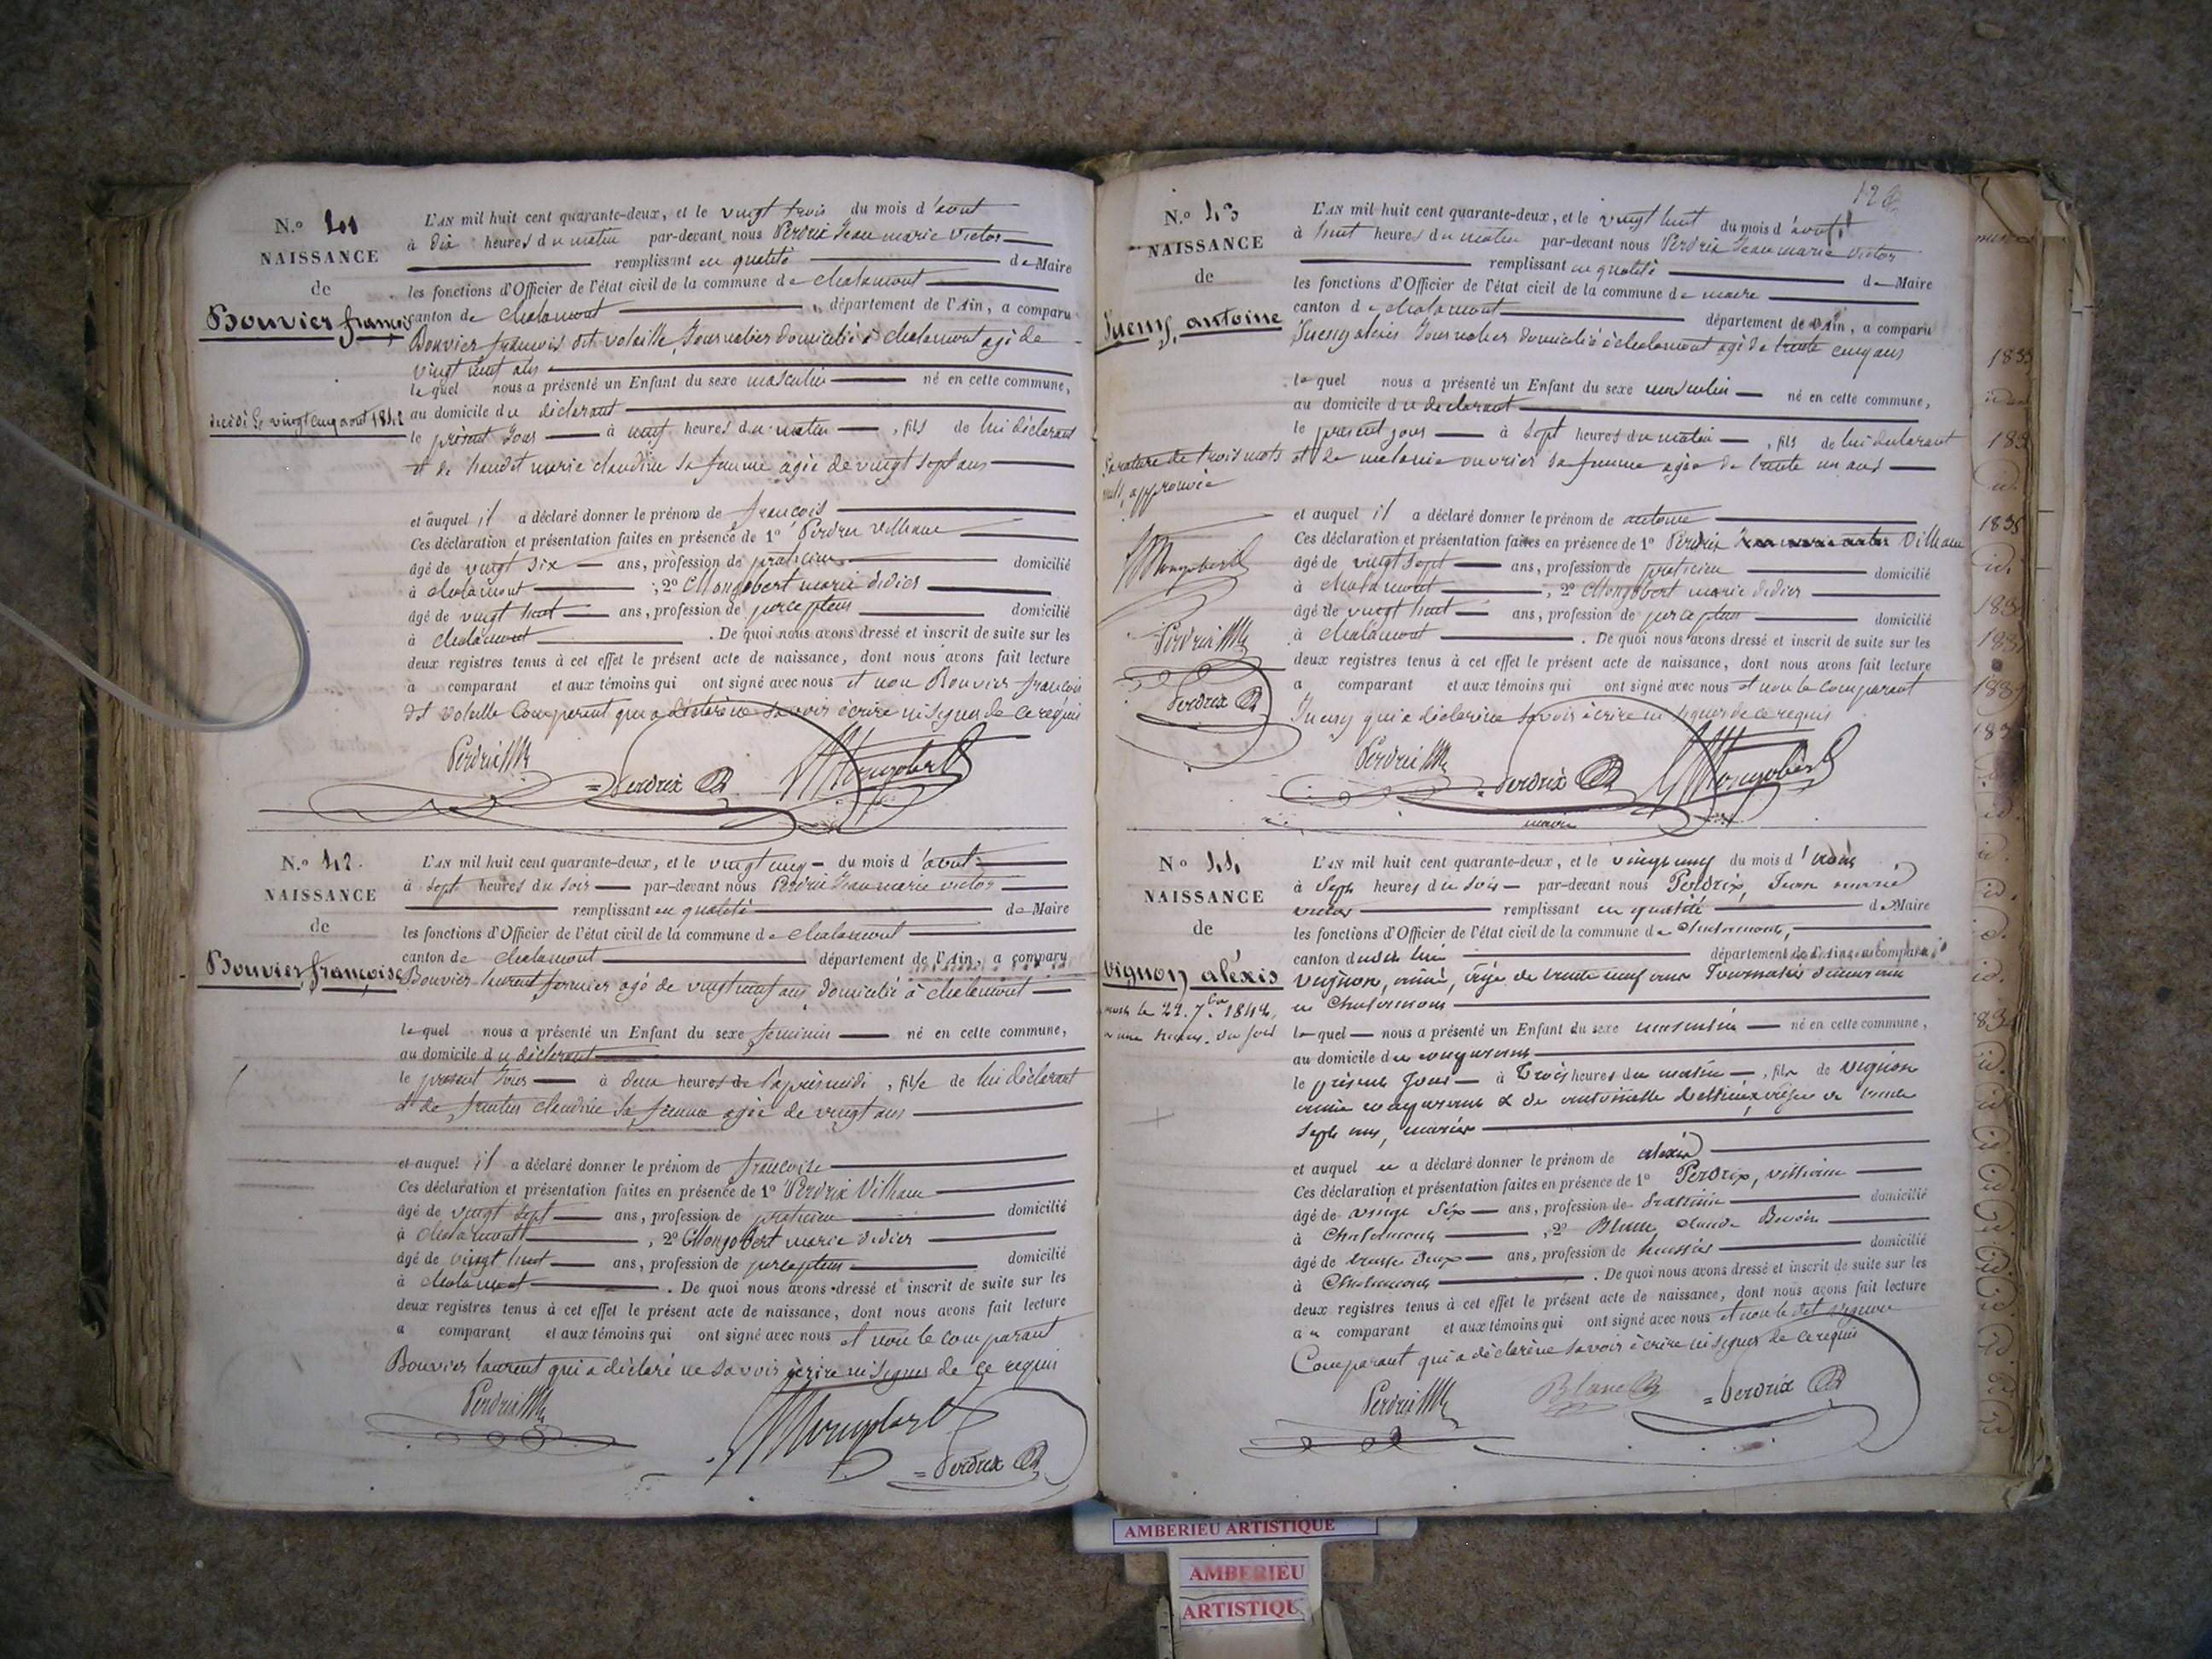 N.º 41
NAISSANCE
de
Bouvier françois
décédé le vingt cinq aout 1842
L'AN mil huit cent quarante-deux, et le vingt trois du mois d'aout
à dix heures du matin par-devant nous Perdrix Jean marie Victor
remplissant en qualité de Maire
les fonctions d'Officier de l'état civil de la commune de chalamont
canton de chalamont, département de l'Ain, a comparu
Bouvier francois dit volaille, Journalier domicilié à chalamont agé de
vingt neuf ans
lequel nous a présenté un Enfant du sexe masculin né en cette commune,
au domicile du déclarant
le présent Jour à neuf heures du matin, fils de lui déclarant
et de marie claudine sa femme agée de vingt sept ans
et auquel il a déclaré donner le prénom de françois
Ces déclaration et présentation faites en présence de 1º Perdrix Villiame
âgé de vingt six ans, profession de praticien domicilié
à chalamont ; 2º Mongobert marie didier
âgé de vingt huit ans, profession de percepteur domicilié
à chalamont. De quoi nous avons dressé et inscrit de suite sur les
deux registres tenus à cet effet le présent acte de naissance, dont nous avons fait lecture
a comparant et aux témoins qui ont signé avec nous et non Bouvier françois
dit volaille Comparant qui a déclaré ne savoir écrire ni signer de ce requis
Perdrix = Perdrix Mongobert
N.º 42.
NAISSANCE
de
Bouvier françoise
L'AN mil huit cent quarante-deux, et le vingt cinq du mois d'aout
à sept heures du soir par-devant nous Perdrix Jean marie victor
remplissant en qualité de Maire
les fonctions d'Officier de l'état civil de la commune de chalamont
canton de chalamont département de l'Ain, a comparu
Bouvier laurent fermier agé de vingt neuf ans domicilié à chalamont
lequel nous a présenté un Enfant du sexe féminin né en cette commune,
au domicile du déclarant
le présent Jour à deux heures de l'après midi, fille de lui déclarant
et de claudine sa femme agée de vingt ans
et auquel il a déclaré donner le prénom de françoise
Ces déclaration et présentation faites en présence de 1º Perdrix Villiame
âgé de vingt sept ans, profession de praticien domicilié
à chalamont, 2º Mongobert marie didier
âgé de vingt huit ans, profession de percepteur domicilié
à chalamont. De quoi nous avons dressé et inscrit de suite sur les
deux registres tenus à cet effet le présent acte de naissance, dont nous avons fait lecture
a comparant et aux témoins qui ont signé avec nous et non le comparant
Bouvier laurent qui a déclaré ne savoir écrire ni signer de ce requis
Perdrix Mongobert = Perdrix
N.º 43
NAISSANCE
de
Jueny, antoine
La rature de trois mots
nuls, approuvée
Mongobert
Perdrix
Perdrix
L'AN mil huit cent quarante-deux, et le vingt huit du mois d'aout
à huit heures du matin par-devant nous Perdrix Jean marie victor
remplissant en qualité de Maire
les fonctions d'Officier de l'état civil de la commune de maire
canton de chalamont département de l'Ain, a comparu
Jueny Journalier domicilié à chalamont agé de trente cinq ans
lequel nous a présenté un Enfant du sexe masculin né en cette commune,
au domicile du déclarant
le présent jour à sept heures du matin, fils de lui déclarant
et de melanie ouvrier sa femme agée de trente un ans
et auquel il a déclaré donner le prénom de antoine
Ces déclaration et présentation faites en présence de 1º Perdrix Villiame
âgé de vingt sept ans, profession de praticien domicilié
à chalamont, 2º Mongobert marie didier
âgé de vingt huit ans, profession de percepteur domicilié
à chalamont. De quoi nous avons dressé et inscrit de suite sur les
deux registres tenus à cet effet le présent acte de naissance, dont nous avons fait lecture
a comparant et aux témoins qui ont signé avec nous et non le comparant
Jueny qui a déclaré ne savoir écrire ni signer de ce requis
Perdrix Perdrix Mongobert
maire
Nº 44
NAISSANCE
de
Vignon aléxis
mort le 22. 7bre 1842,
à une heure du soir
L'AN mil huit cent quarante-deux, et le vingt neuf du mois d'août
à Sept heures du soir par-devant nous Perdrix, Jean marie
victor remplissant en qualité de Maire
les fonctions d'Officier de l'état civil de la commune de Chalamont,
canton dudit lieu département de l'Ain, a comparu
Vignon, aimé, âgé de trente neuf ans Journalier demeurant
à Chalamont
lequel nous a présenté un Enfant du sexe masculin né en cette commune,
au domicile du comparant
le présent Jour à Trois heures du matin, fils de Vignon
aimé comparant & de antoinette âgée de trente
sept ans, mariés
et auquel il a déclaré donner le prénom de aléxis
Ces déclaration et présentation faites en présence de 1º Perdrix, villiame
âgé de vingt Six ans, profession de Praticien domicilié
à Chalamont, 2º Blanc claude
âgé de trente deux ans, profession de huissier domicilié
à Chalamont. De quoi nous avons dressé et inscrit de suite sur les
deux registres tenus à cet effet le présent acte de naissance, dont nous avons fait lecture
au comparant et aux témoins qui ont signé avec nous et non le dit vignon
Comparant qui a déclaré ne savoir écrire ni signer de ce requis
Perdrix Blanc = Perdrix
AMBERIEU ARTISTIQUE
AMBERIEU
ARTISTIQU